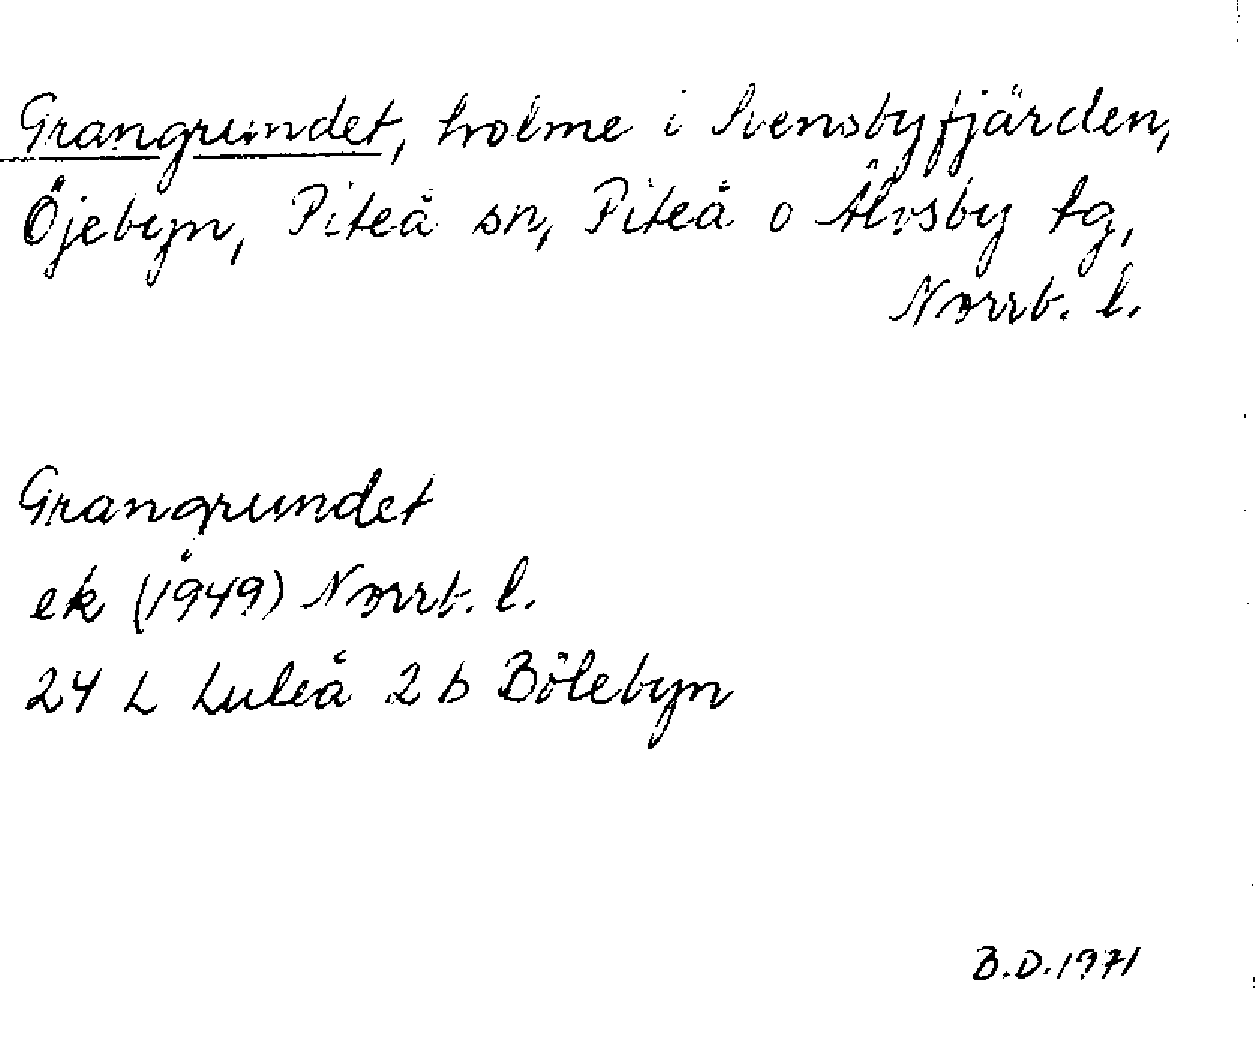 Grangrundet, holme i Svensbyfjärden,
Öjebyn, Piteå sn, Piteå o Älvsby tg,
Norrb. l.
Grangrundet
ek (1949) Norrb. l.
24 L Luleå 2 b Bölebyn
B.D. 1971